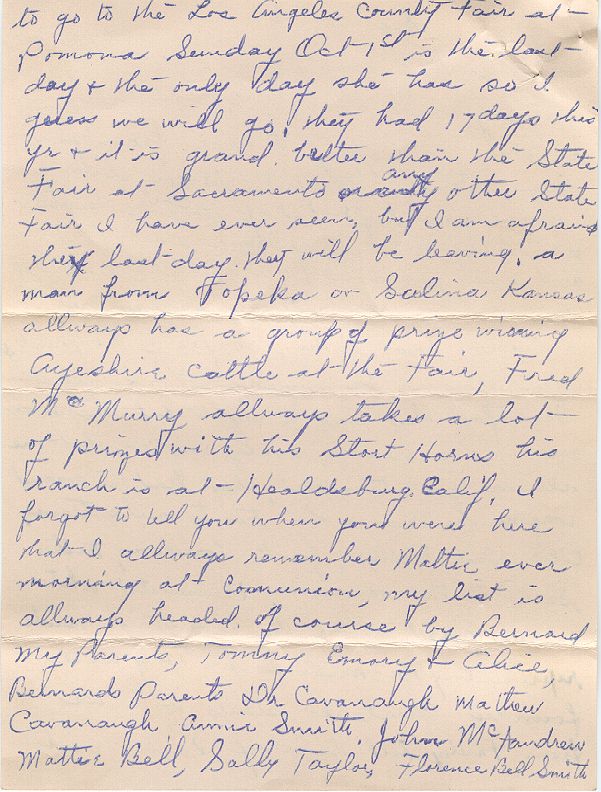 to go to the Los Angeles County Fair at
Pomona Sunday Oct 1st is the last
day + the only day she has so I
guess we will go, they had 17 days this
yr + it is grand. better than the State
Fair at Sacramento or any other State
Fair I have ever seen, but I am afraid
the last day they will be leaving. a
man from Topeka or Salina Kansas
allways has a group of prize wining
Ayeshire cattle at the Fair, Fred
McMurry allways takes a lot
of prizes with his Stort Horns his
ranch is at Healdsburg Calif, I
forgot to tell you when you were here
that I allways remember Mattie ever
morning at Comunion, my list is
allways headed of course by Bernard
My Parents, Tommy Emory + Alice,
Bernards Parents Dr Cavanaugh Mathew
Cavanaugh, Annie Smith, John McAndrew
Mattie Bell, Sally Taylor, Florence Bell Smith